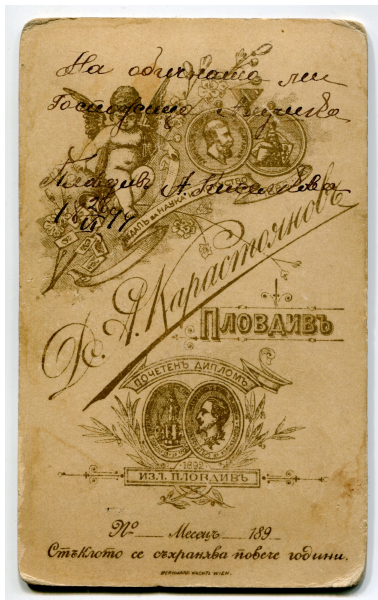 На обичната ми
Госпожица
Пловдивъ
МЕДАЛЪ ЗА НАУКА, ИСКУСТВО
Д. А. Карастояновъ
Пловдивъ
ПОЧЕТЕНЪ ДИПЛОМЪ
1892
ИЗЛ. ПЛОВДИВЪ
№ Месецъ 189
Стъклото се съхранява повече години.
BERNHARD WACHTL WIEN.